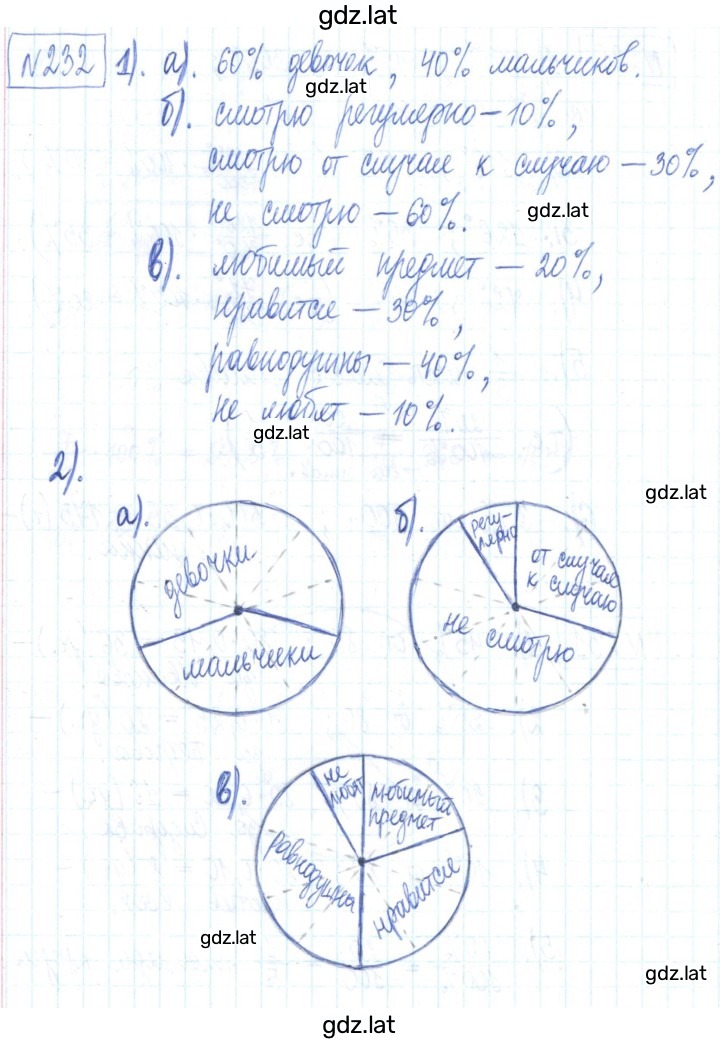 gdz.lat
№232 1). а). 60% девочек, 40% мальчиков.
gdz.lat
б). смотрю регулярно – 10%,
смотрю от случая к случаю – 30%,
не смотрю – 60%.
gdz.lat
в). любимый предмет – 20%,
нравится – 30%,
равнодушны – 40%,
не любят – 10%.
gdz.lat
2).
gdz.lat
а).
девочки
мальчики
б).
регу-
лярно
от случая
к случаю
не смотрю
в).
не
любят
любимый
предмет
равнодушны
нравится
gdz.lat
gdz.lat
gdz.lat